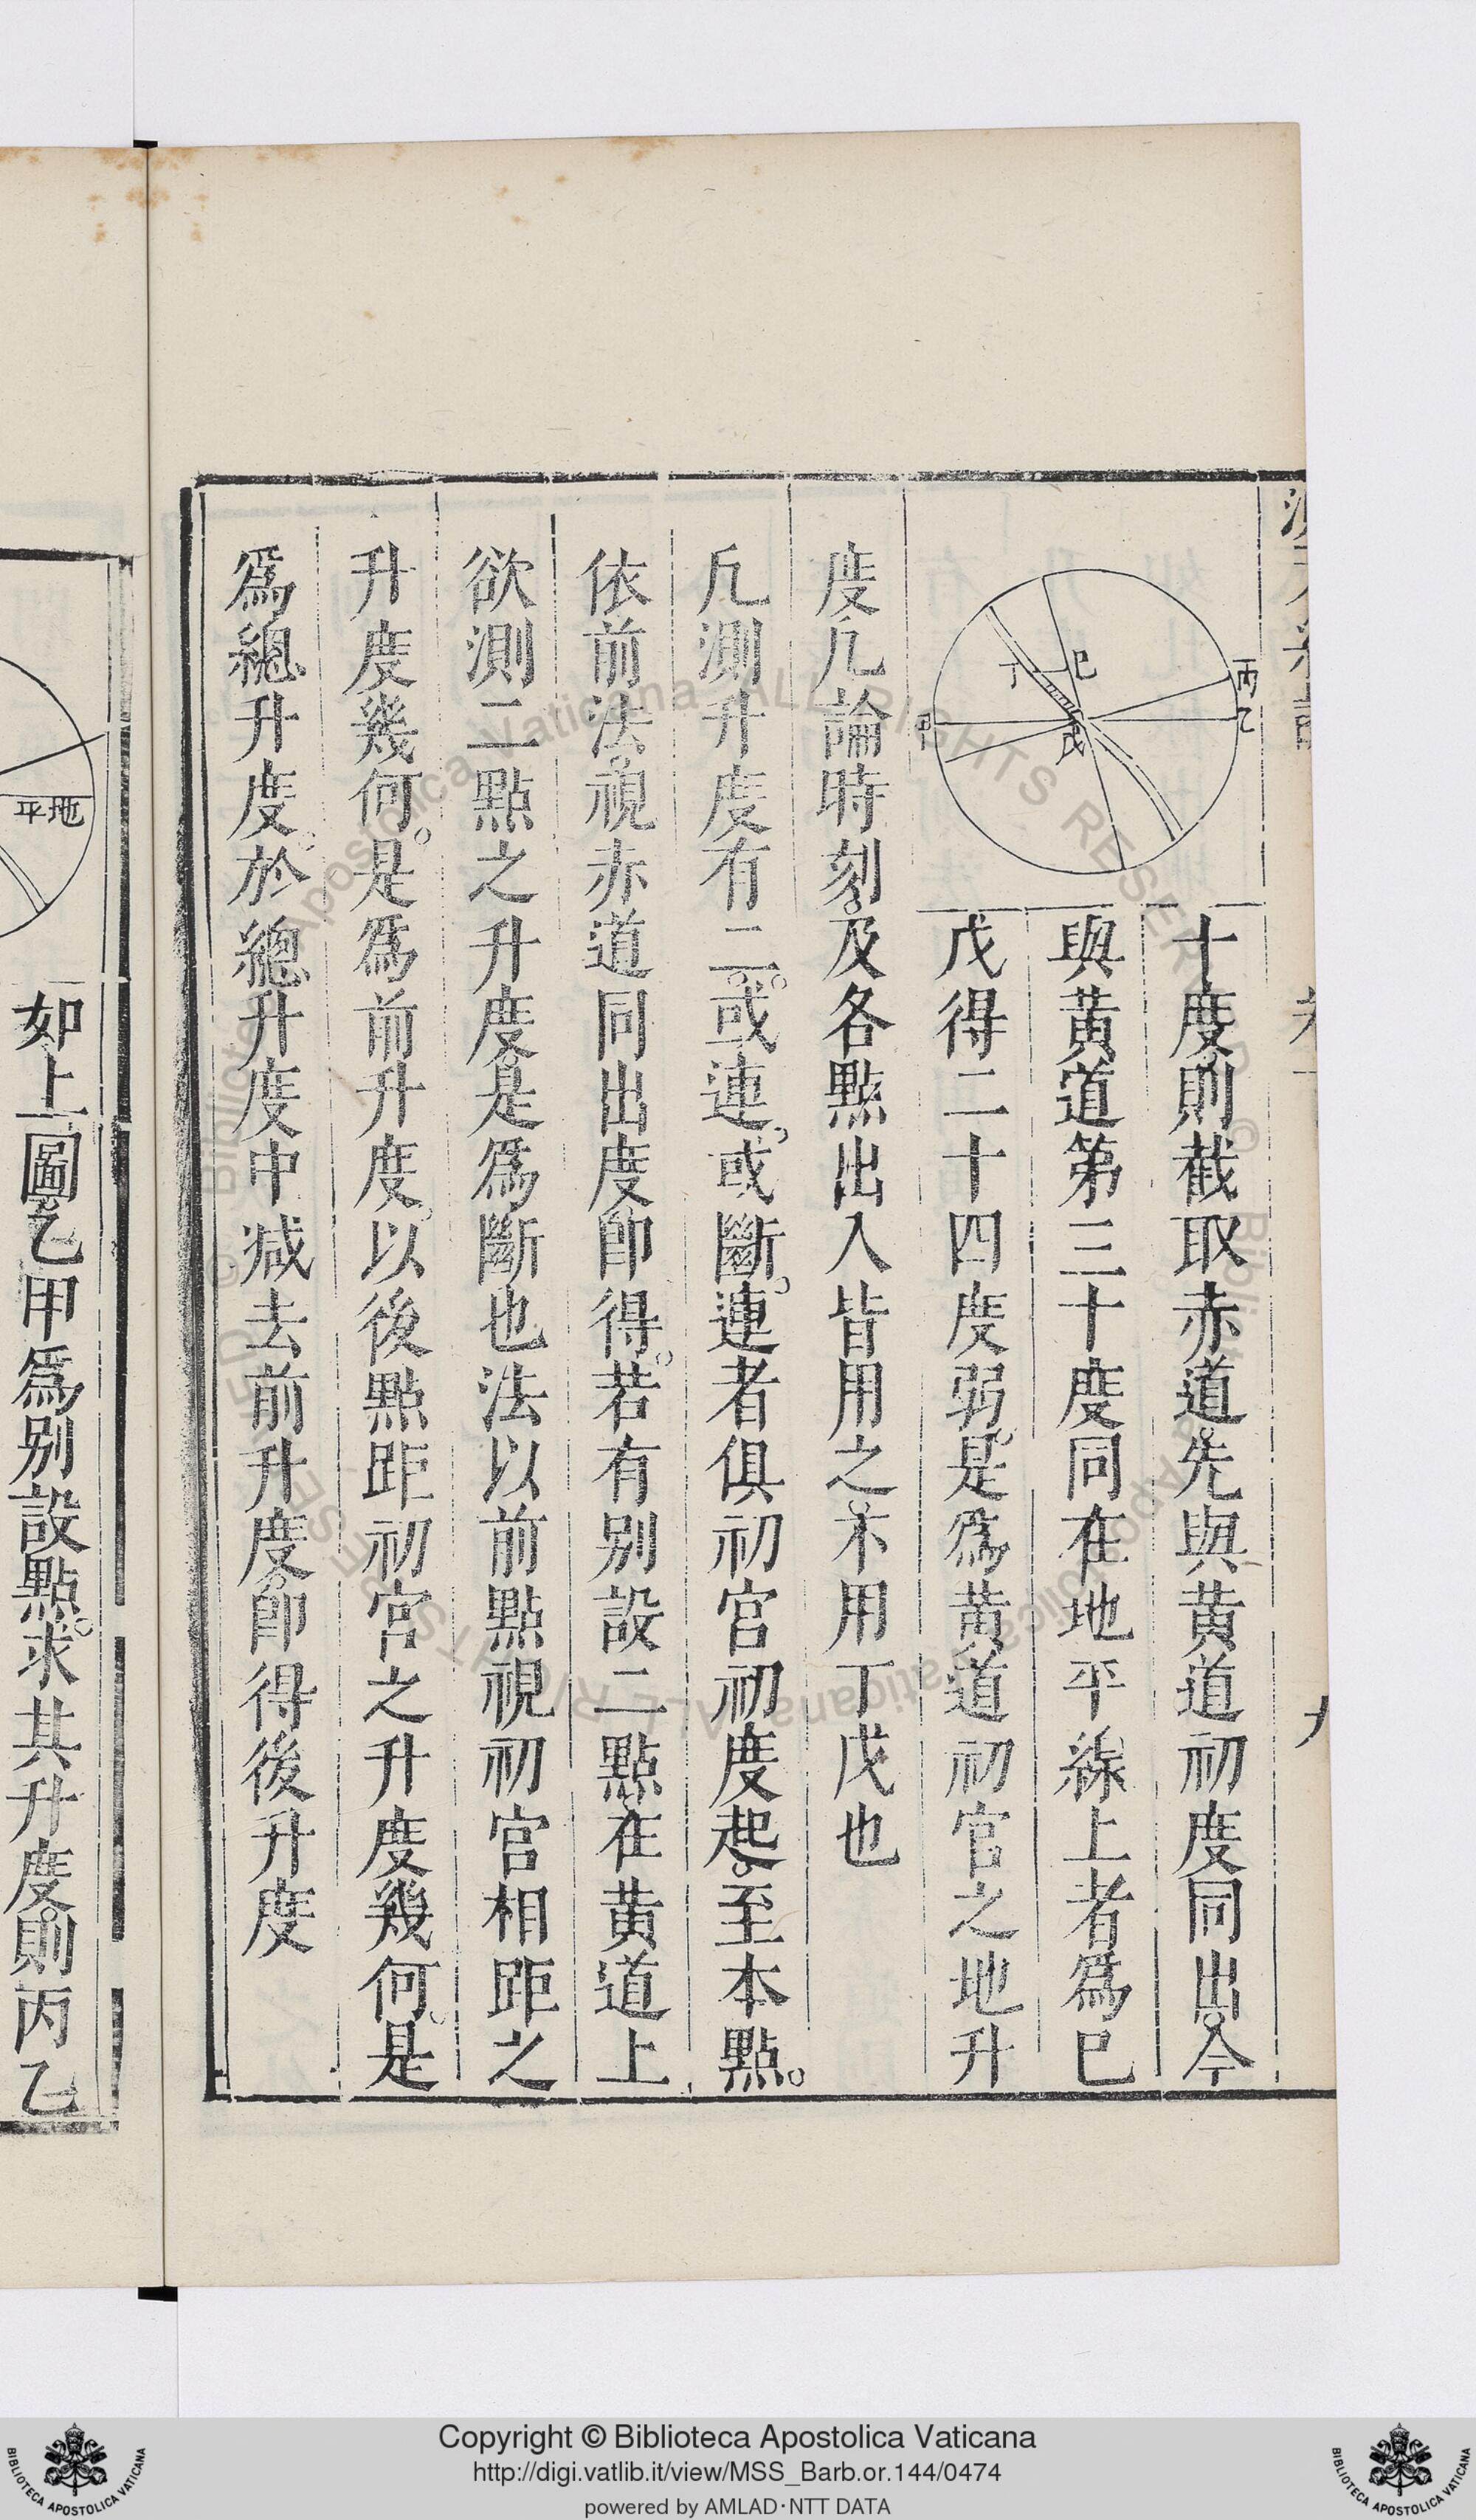 十度則截取赤道先與黃道初度同出今
與黃道第三十度同在地平線上者爲巳
戊得二十四度弱是爲黃道初宮之地升
度凡論時刻及各點出入皆用之不用丁戊也
凡測升度有二或連或斷連者俱初宮初度起至本點
依前法視赤道同出度即得若有別設二點在黃道上
欲測二點之升度是爲斷也法以前點視初宮相距之
升度幾何是爲前升度以後點距初宮之升度幾何是
爲總升度於總升度中減去前升度即得後升度
丙
乙
巳
丁
戊
甲
九
如上圖乙甲爲別設點求其升度則丙乙
地平
Copyright © Biblioteca Apostolica Vaticana
http://digi.vatlib.it/view/MSS_Barb.or.144/0474
powered by AMLAD·NTT DATA
BIBLIOTECA APOSTOLICA VATICANA
BIBLIOTECA APOSTOLICA VATICANA